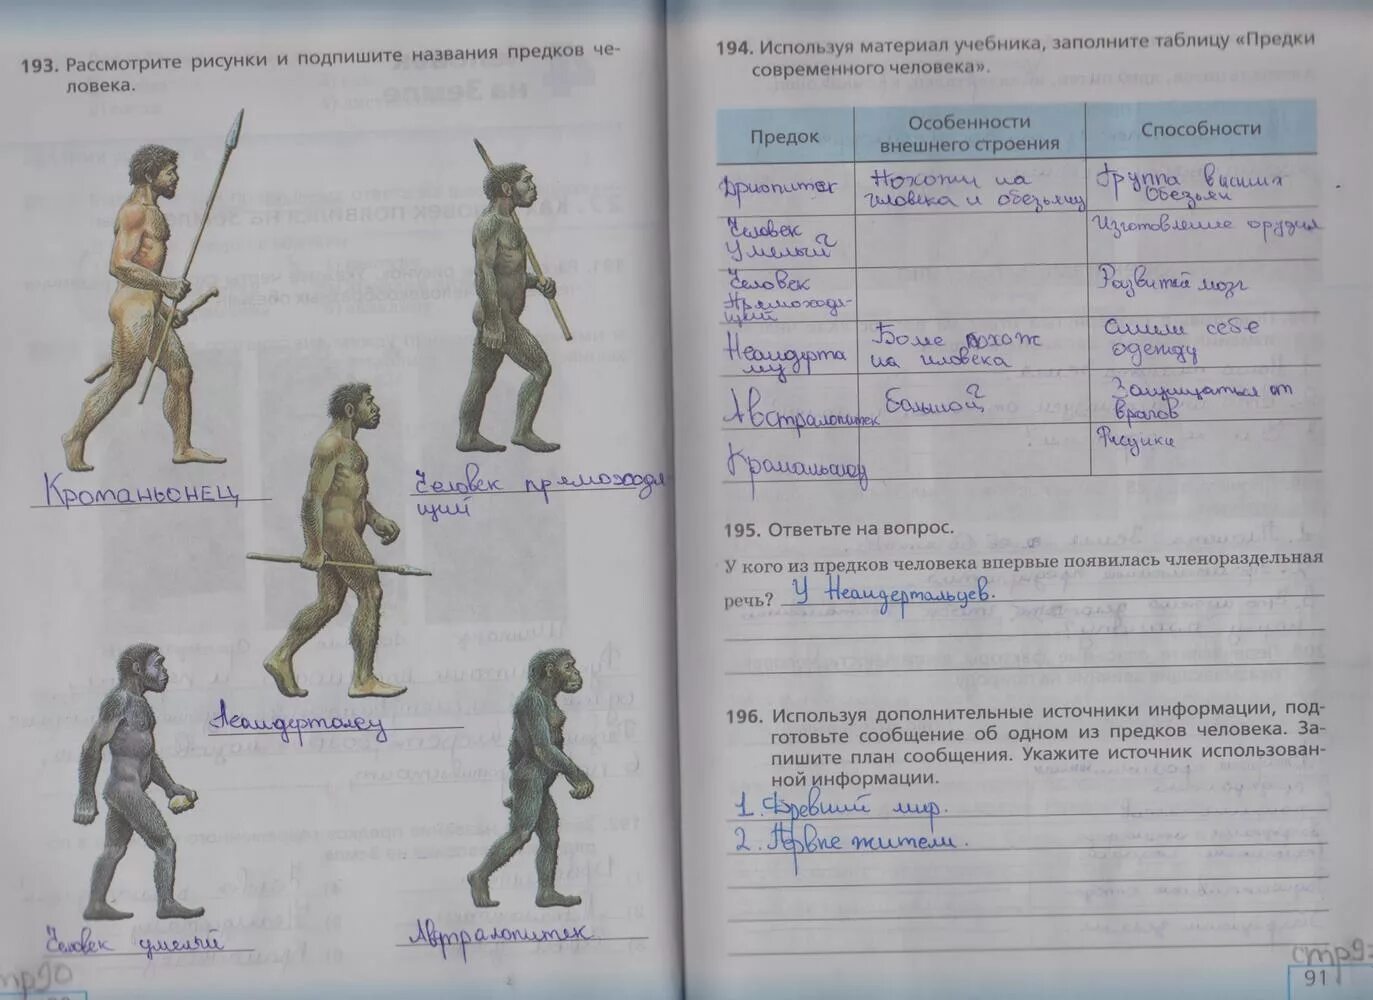 193. Рассмотрите рисунки и подпишите названия предков че-
ловека.
Кроманьонец
Человек прямоходя
щий
Неандерталец
Человек умелый
Австралопитек
стр90
194. Используя материал учебника, заполните таблицу «Предки
современного человека».
Предок
Особенности
внешнего строения
Способности
Дриопитек
Похожи на
человека и обезьяну
Группа высших
обезьян
Человек
Умелый
Изготовление орудия
Человек
Прямоходя-
щий
Развитей мозг
Неандерта
Более похож
на человека
сшили себе
одежду
Австралопитек
большой
Защищаться от
врагов
Рисунки
195. Ответьте на вопрос.
У кого из предков человека впервые появилась членораздельная
речь? У Неандертальцев.
196. Используя дополнительные источники информации, под-
готовьте сообщение об одном из предков человека. За-
пишите план сообщения. Укажите источник использован-
ной информации.
1. Древний мир.
2. Первые жители.
91